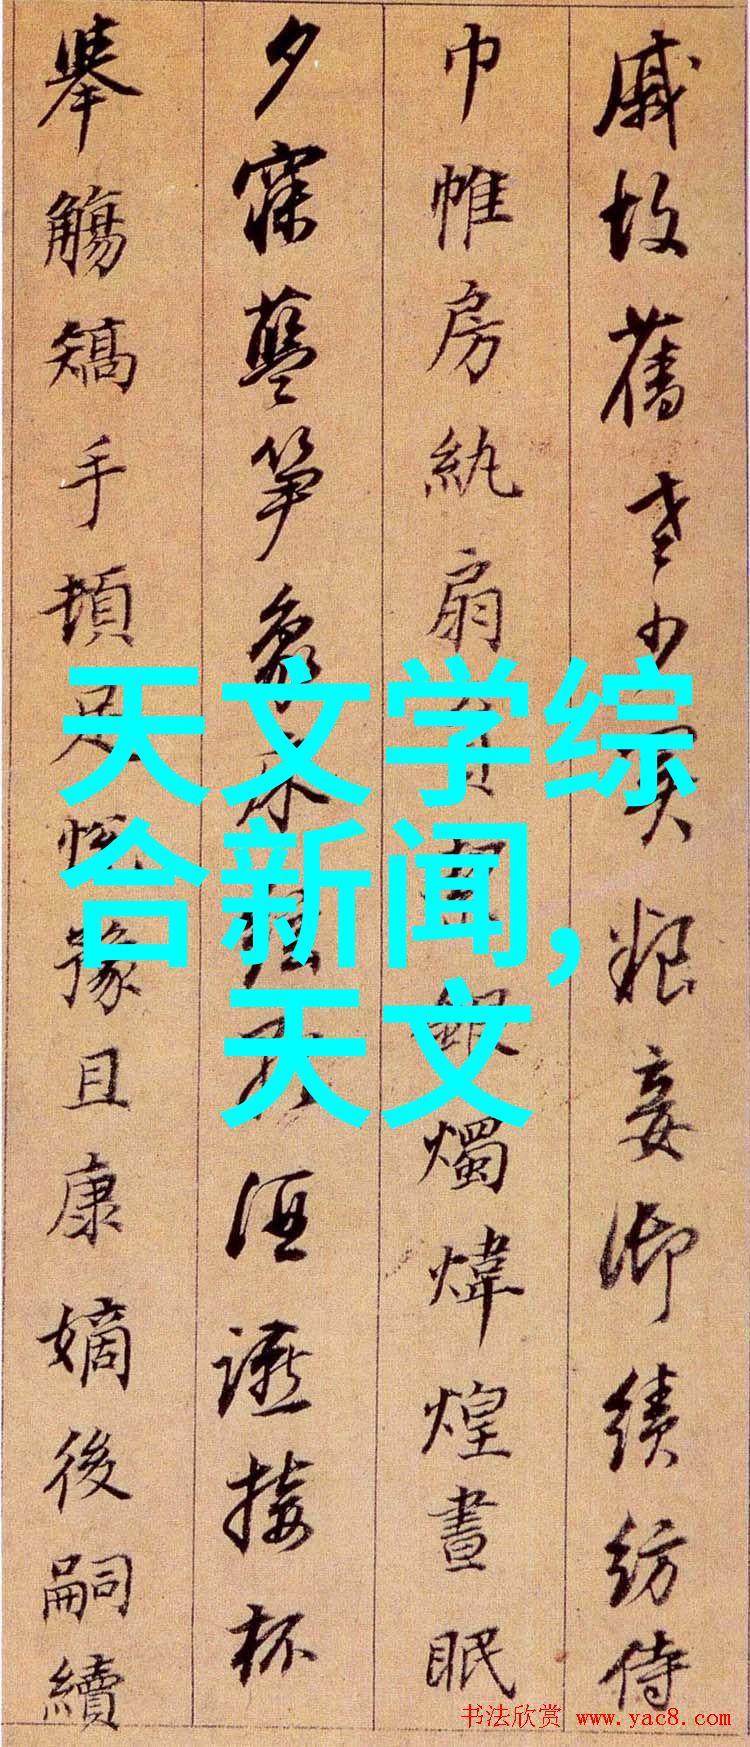 戚故舊老少異粮妾御績紡侍
巾帷房紈扇員銀燭煒煌晝眠
夕寐藍笋象床絃歌酒讌接杯
舉觴矯手頓足悅豫且康嫡後嗣續
天文学综
合新闻,
天文
书法欣赏 www.yac8.com